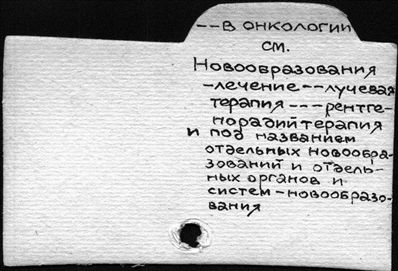 -- В ОНКОЛОГИИ
СМ.
Новообразования
-лечение--лучевая
терапия---рентге-
норадийтерапия
и под названием
отдельных новообра-
зований и отдель-
ных органов и
систем-новообразо-
вания